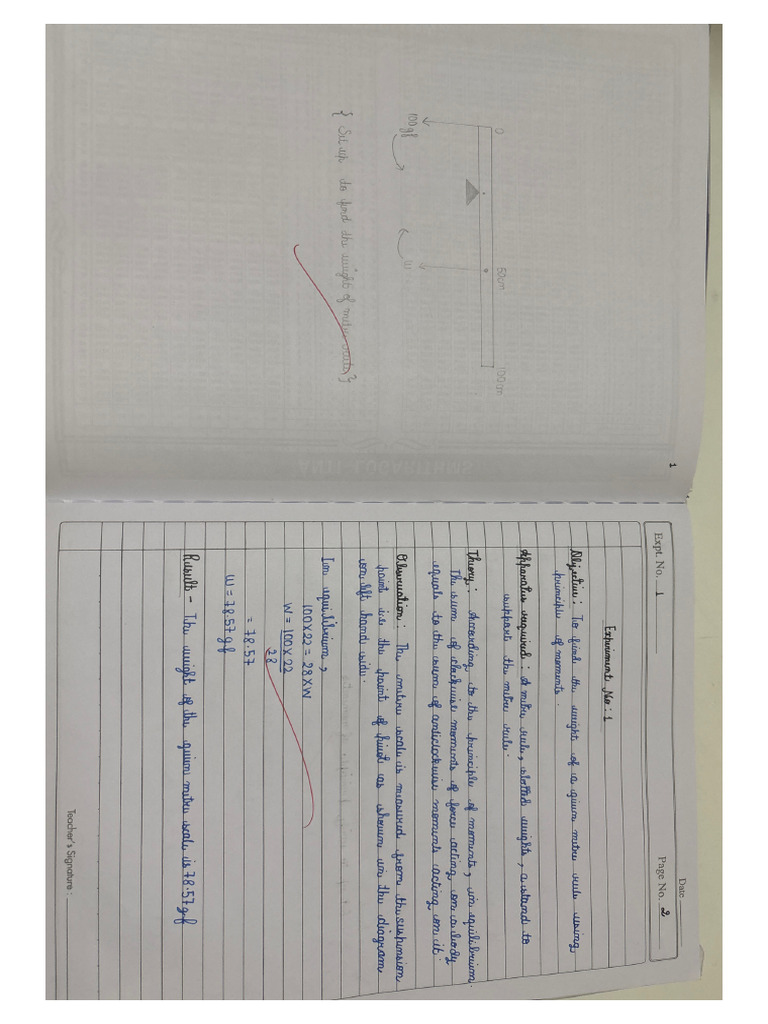 0
50cm
100cm
100gf
W
{ Set up to find the weight of metre rule }
1
Expt. No. 1
Date
Page No. 2
Experiment No : 1
Objective : To find the weight of a given metre rule using
principle of moments.
Apparatus required : A metre rule, slotted weights, a stand to
support the metre rule.
Theory : According to the principle of moments, in equilibrium
The sum of clockwise moments of force acting on a body
equals to the sum of anticlockwise moments acting on it.
Observation : The metre scale is measured from the suspension
point i.e. the point of
as shown in the diagram
on left hand side.
In equilibrium,
100 X 22 = 28 X W
W = 100 X 22
28
= 78.57
W = 78.57 gf
Result - The weight of the given metre scale is 78.57 gf
Teacher's Signature :
ANTI-LOGARITHMS